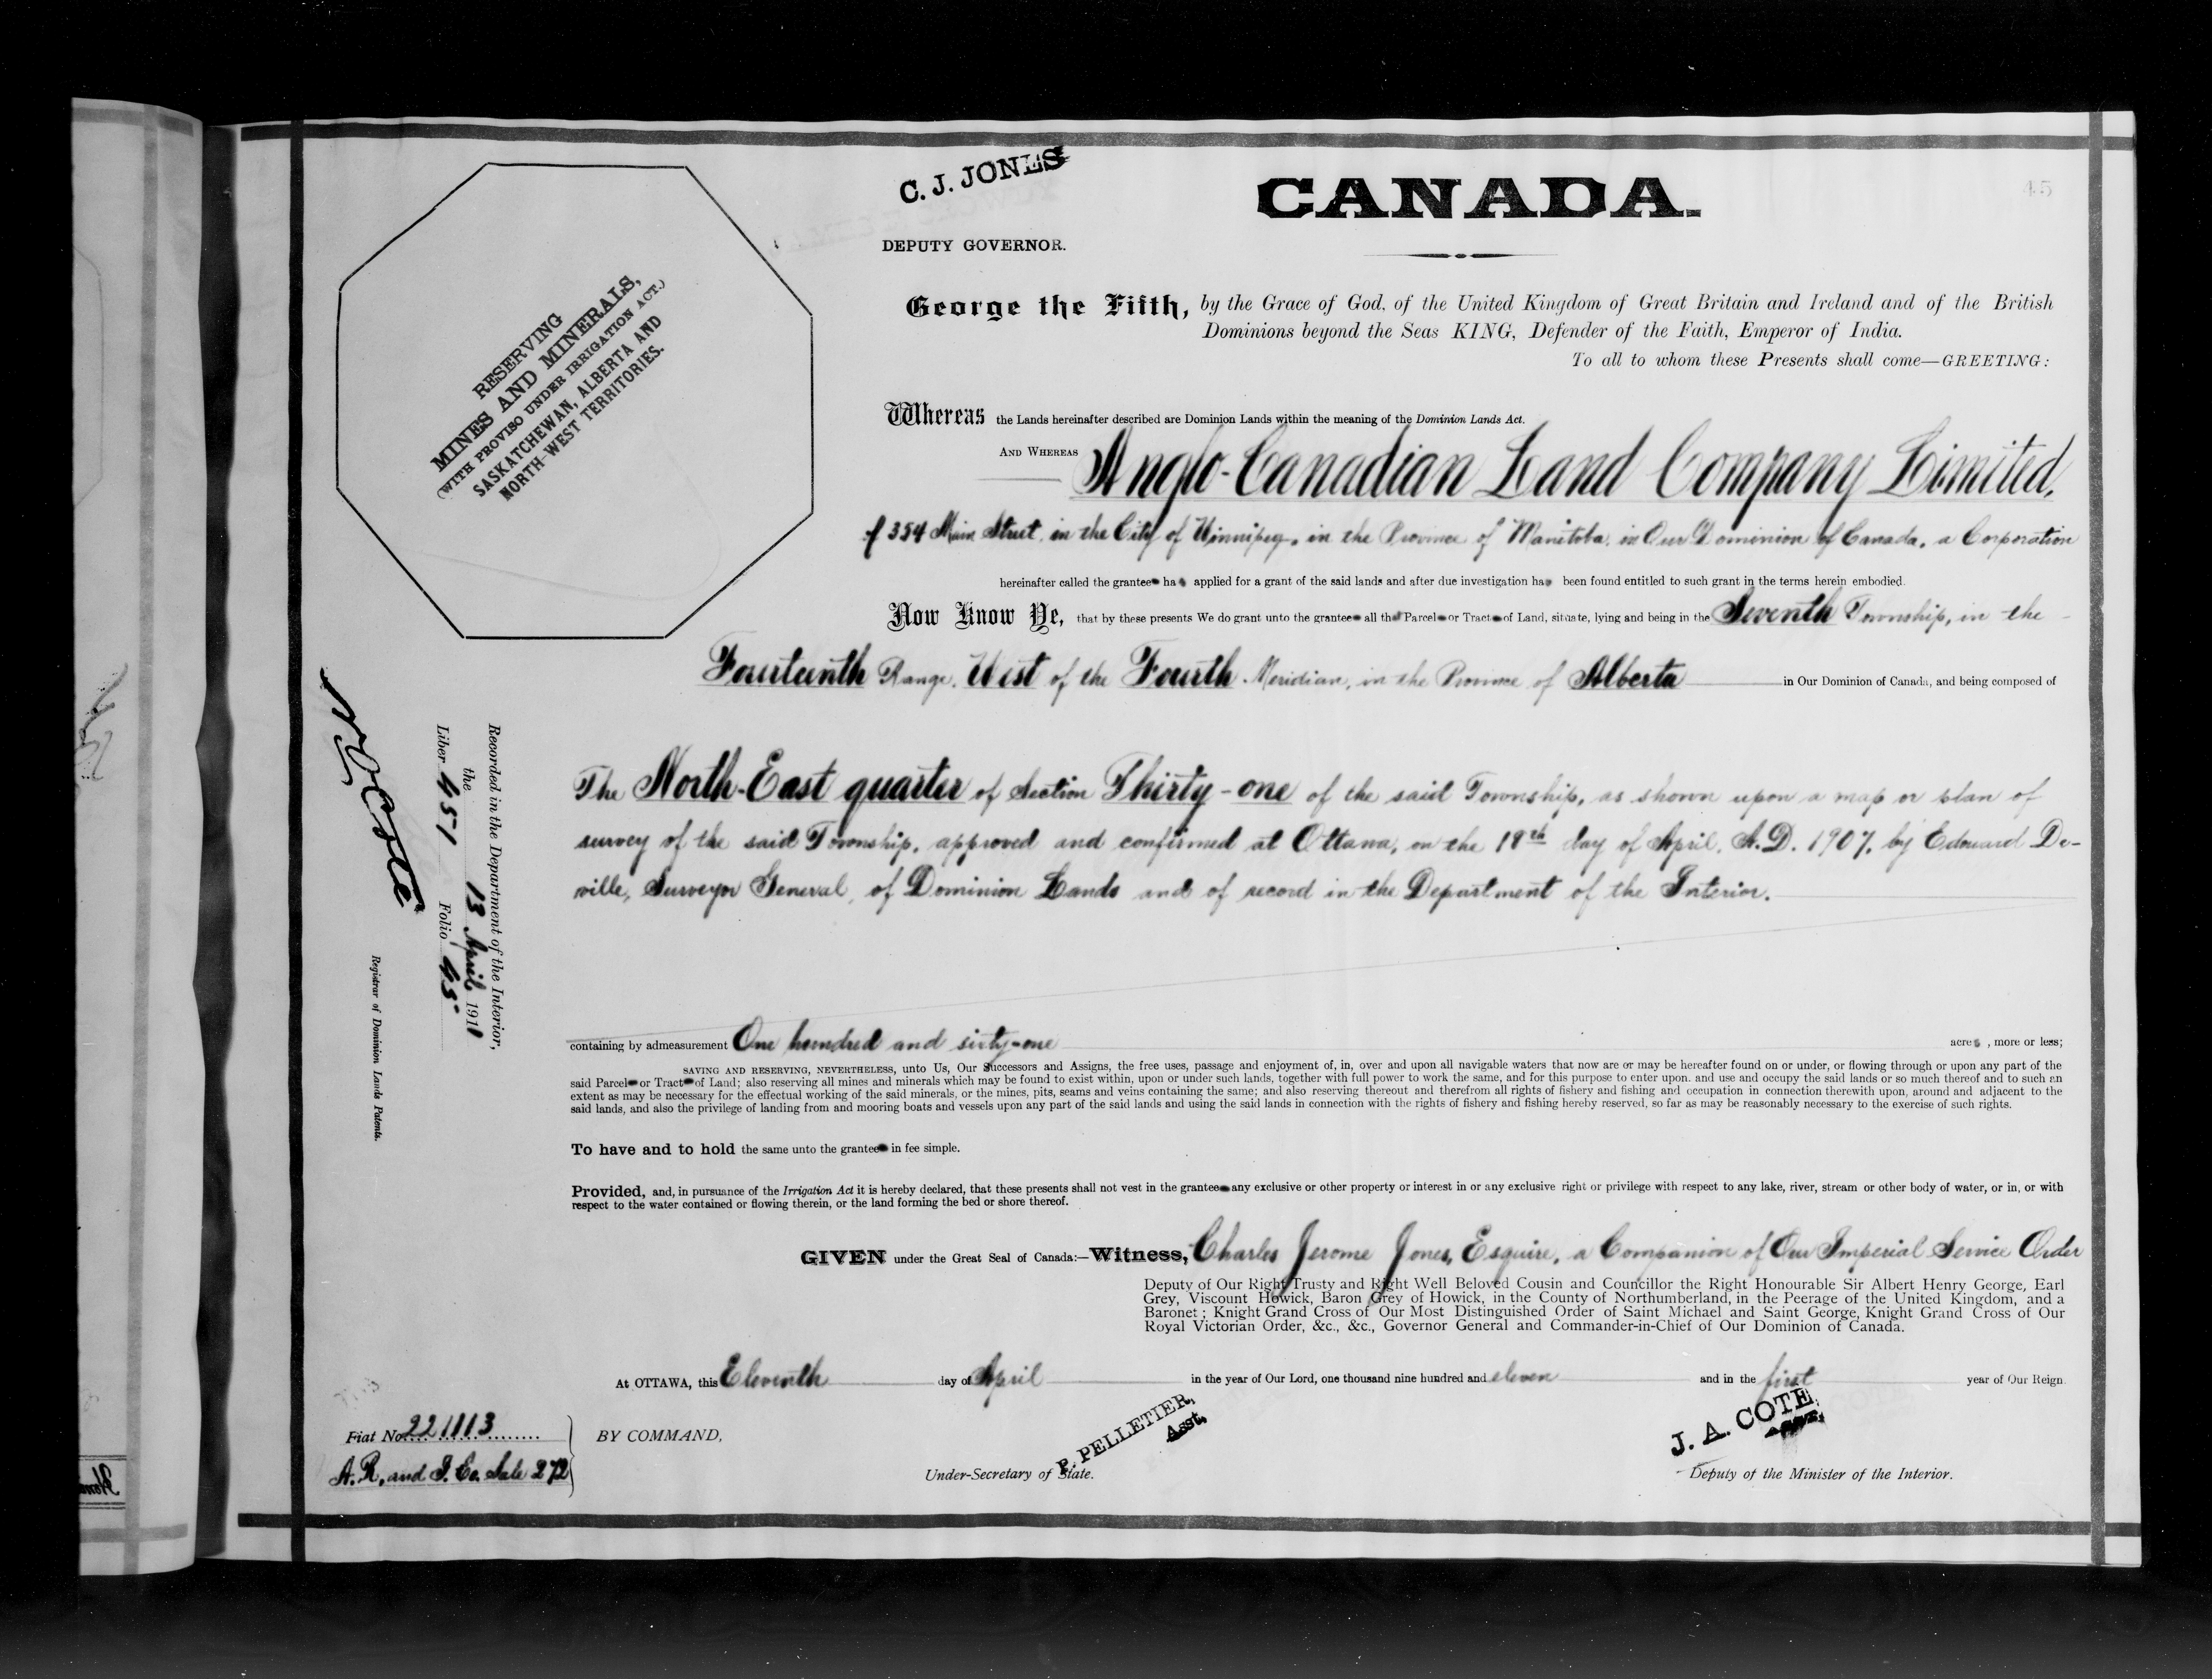 C. J. JONES
DEPUTY GOVERNOR.
CANADA.
45
RESERVING
MINES AND MINERALS,
(WITH PROVISO UNDER IRRIGATION ACT.)
SASKATCHEWAN, ALBERTA AND
NORTH-WEST TERRITORIES.
George the Fifth, by the Grace of God, of the United Kingdom of Great Britain and Ireland and of the British
Dominions beyond the Seas KING, Defender of the Faith, Emperor of India.
To all to whom these Presents shall come—GREETING:
Whereas the Lands hereinafter described are Dominion Lands within the meaning of the Dominion Lands Act.
AND WHEREAS Anglo-Canadian Land Company Limited,
of 354 Main Street, in the City of Winnipeg, in the Province of Manitoba, in Our Dominion of Canada, a Corporation
hereinafter called the grantee has applied for a grant of the said lands and after due investigation has been found entitled to such grant in the terms herein embodied.
Now Know Ye, that by these presents We do grant unto the grantee all that Parcel or Tract of Land, situate, lying and being in the Seventh Township, in the
Fourteenth Range, West of the Fourth Meridian, in the Province of Alberta in Our Dominion of Canada, and being composed of
The North-East quarter of Section Thirty-one of the said Township, as shown upon a map or plan of
survey of the said Township, approved and confirmed at Ottawa, on the 18th day of April, A.D. 1907, by Edouard De-
ville, Surveyor General, of Dominion Lands and of record in the Department of the Interior.
containing by admeasurement One hundred and sixty-one acres, more or less;
SAVING AND RESERVING, NEVERTHELESS, unto Us, Our Successors and Assigns, the free uses, passage and enjoyment of, in, over and upon all navigable waters that now are or may be hereafter found on or under, or flowing through or upon any part of the
said Parcel or Tract of Land; also reserving all mines and minerals which may be found to exist within, upon or under such lands, together with full power to work the same, and for this purpose to enter upon. and use and occupy the said lands or so much thereof and to such an
extent as may be necessary for the effectual working of the said minerals, or the mines, pits, seams and veins containing the same; and also reserving thereout and therefrom all rights of fishery and fishing and occupation in connection therewith upon, around and adjacent to the
said lands, and also the privilege of landing from and mooring boats and vessels upon any part of the said lands and using the said lands in connection with the rights of fishery and fishing hereby reserved, so far as may be reasonably necessary to the exercise of such rights.
To have and to hold the same unto the grantee in fee simple.
Provided, and, in pursuance of the Irrigation Act it is hereby declared, that these presents shall not vest in the grantee any exclusive or other property or interest in or any exclusive right or privilege with respect to any lake, river, stream or other body of water, or in, or with
respect to the water contained or flowing therein, or the land forming the bed or shore thereof.
GIVEN under the Great Seal of Canada:—Witness, Charles Jerome Jones, Esquire, a Companion of Our Imperial Service Order
Deputy of Our Right Trusty and Right Well Beloved Cousin and Councillor the Right Honourable Sir Albert Henry George, Earl
Grey, Viscount Howick, Baron Grey of Howick, in the County of Northumberland, in the Peerage of the United Kingdom, and a
Baronet; Knight Grand Cross of Our Most Distinguished Order of Saint Michael and Saint George, Knight Grand Cross of Our
Royal Victorian Order, &c., &c., Governor General and Commander-in-Chief of Our Dominion of Canada.
At OTTAWA, this Eleventh day of April in the year of Our Lord, one thousand nine hundred and eleven and in the first year of Our Reign.
BY COMMAND,
P. PELLETIER,
Asst.
Under-Secretary of State.
J. A. COTE
Deputy of the Minister of the Interior.
Fiat No. 221113
A. R. and I. Co. Sale 272
Recorded in the Department of the Interior,
the 13 April 1911
Liber 451 Folio 45
N O Coté
Registrar of Dominion Lands Patents.